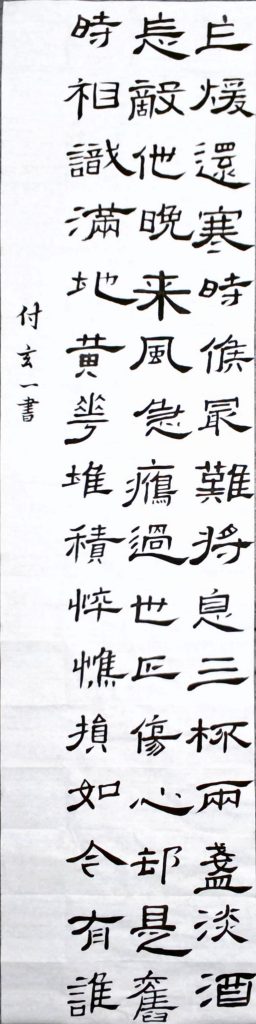 乍煖還寒時候冣難将息三杯兩盞淡酒
怎敵他晚来風急鴈過也正傷心却是舊
時相識滿地黄華堆積悴憔損如今有誰
付玄一書